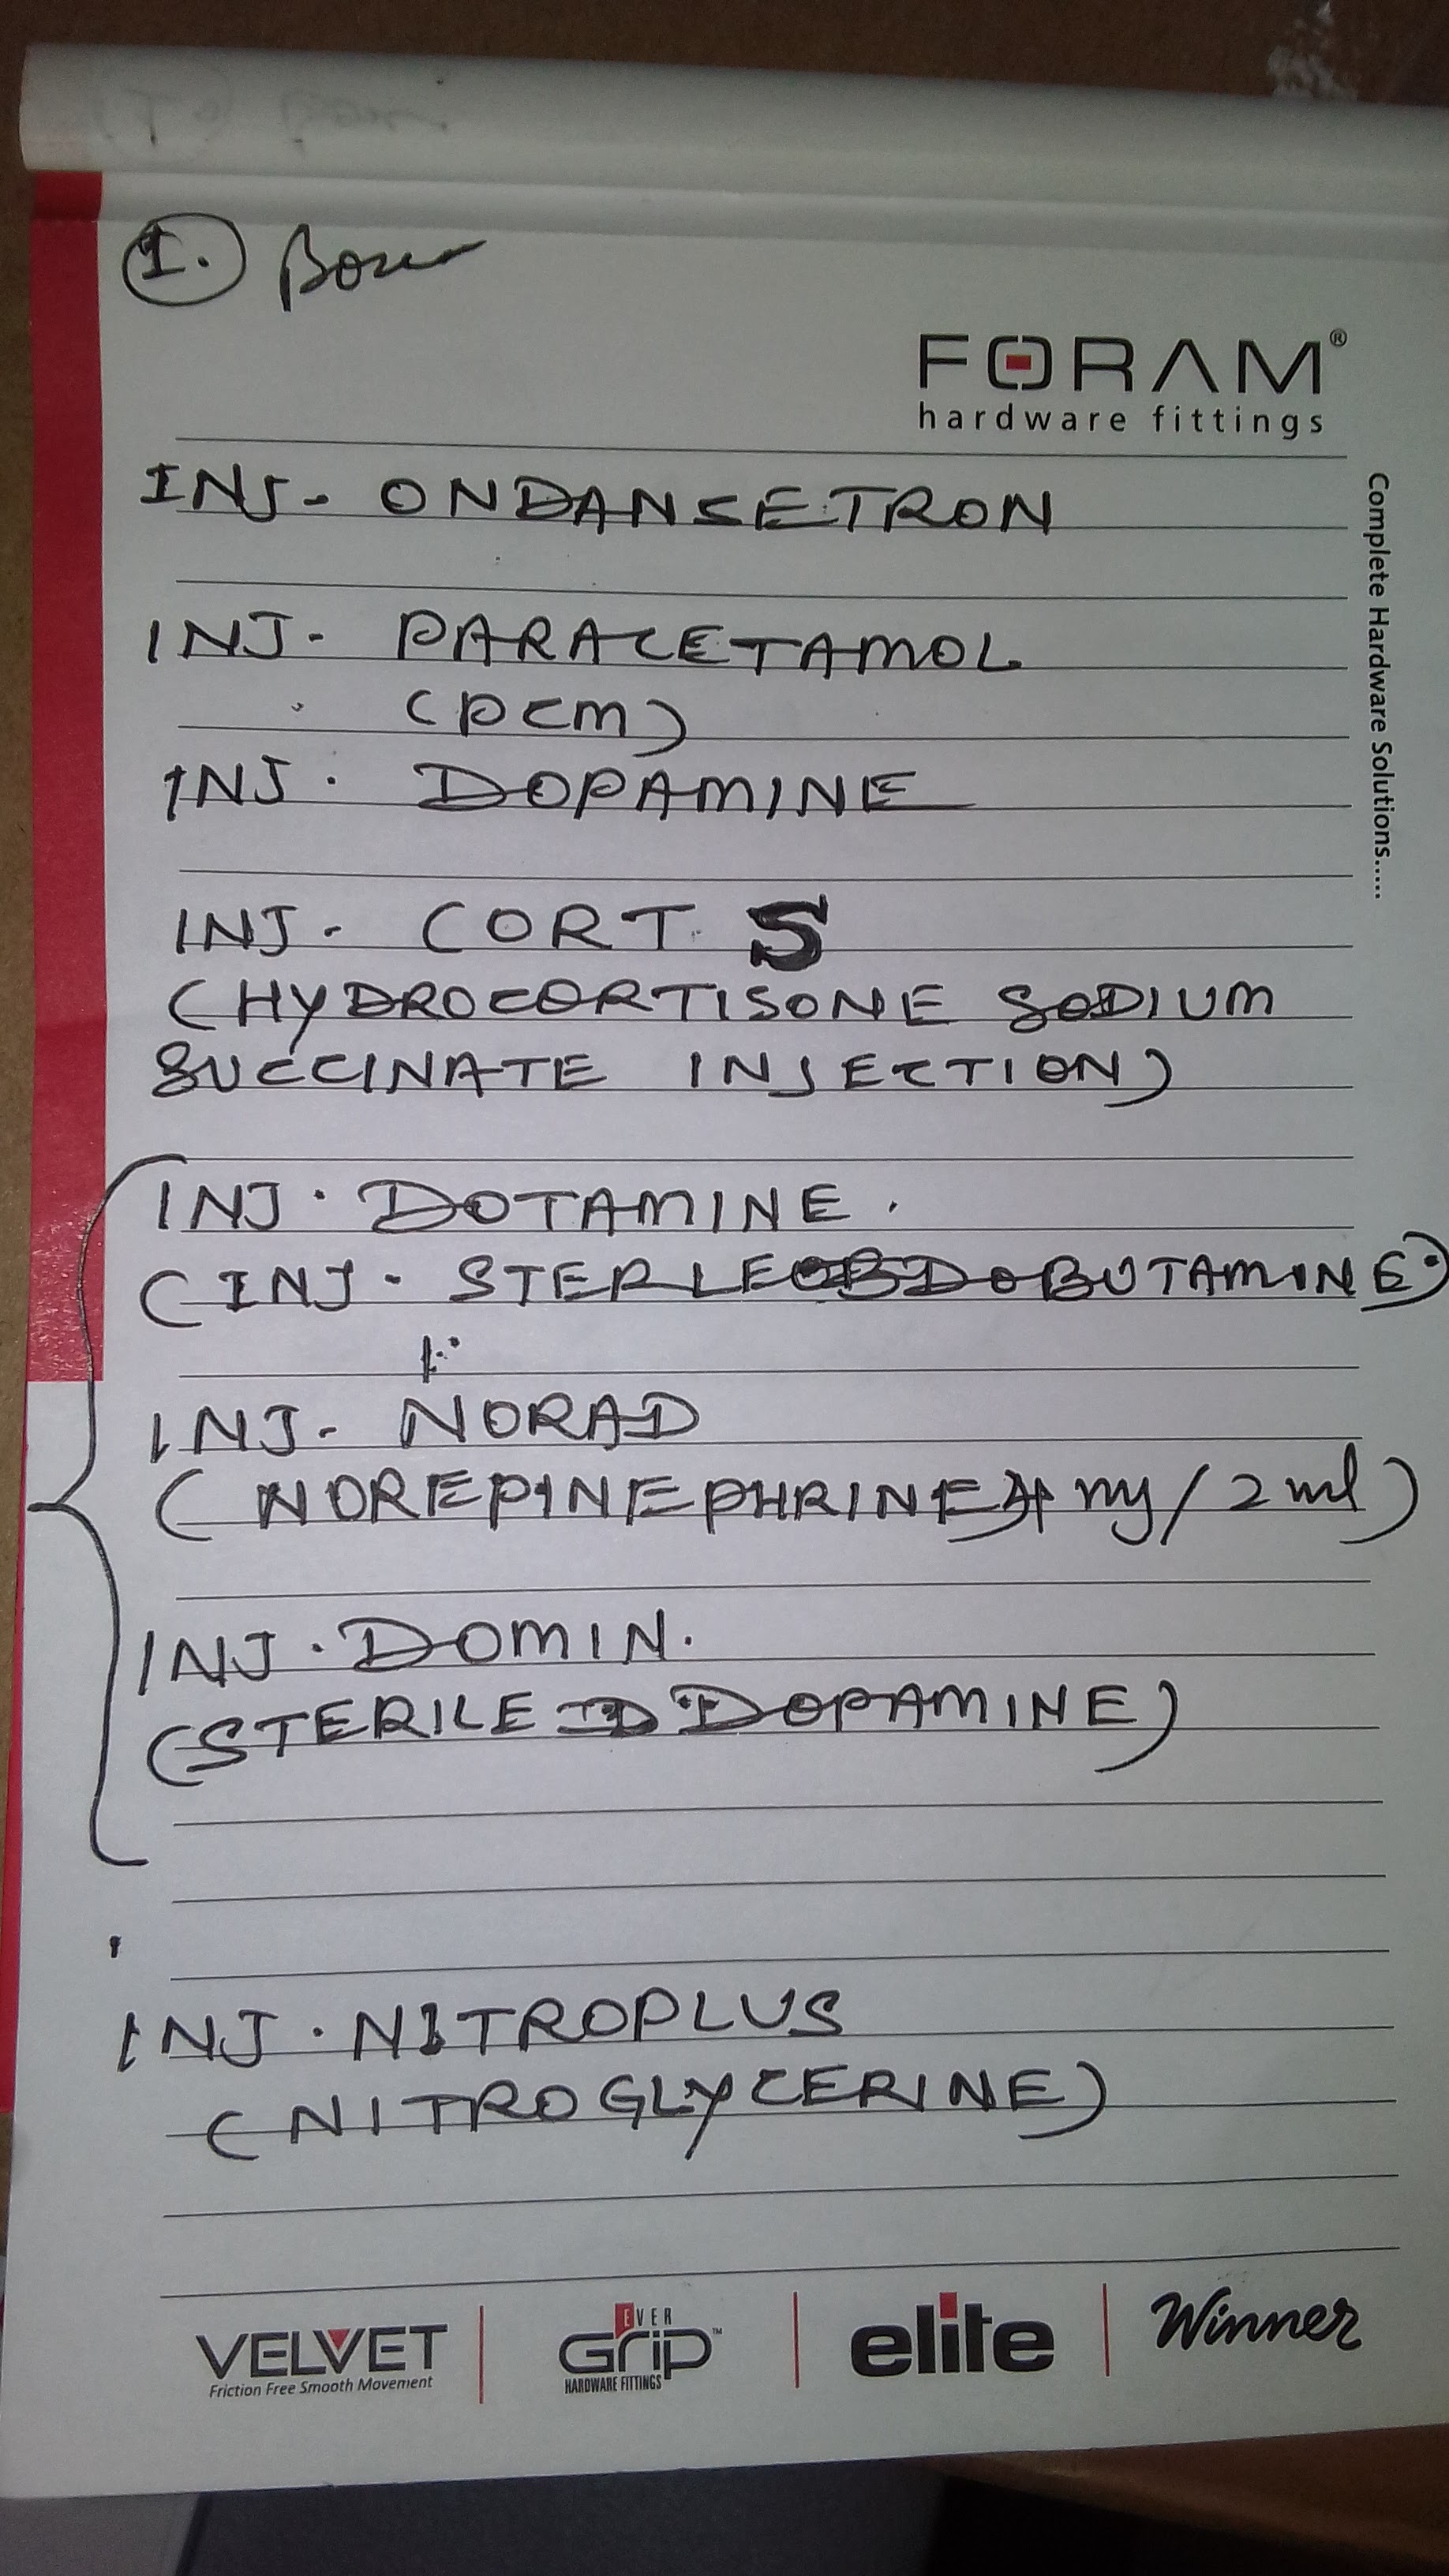 1.
FORAM®
hardware fittings
Complete Hardware Solutions.....
INJ- ONDANSETRON
INJ- PARACETAMOL
(PCM)
INJ. DOPAMINE
INJ- CORT S
(HYDROCORTISONE SODIUM
SUCCINATE INJECTION)
INJ. DOTAMINE.
(INJ- STERLE DOBUTAMINE.)
INJ- NORAD
(NOREPINEPHRINE 4 mg/2ml)
INJ. DOMIN.
(STERILE DOPAMINE)
INJ. NITROPLUS
(NITROGLYCERINE)
VELVET
Friction Free Smooth Movement
EVER
Grip™
HARDWARE FITTINGS
elite
Winner